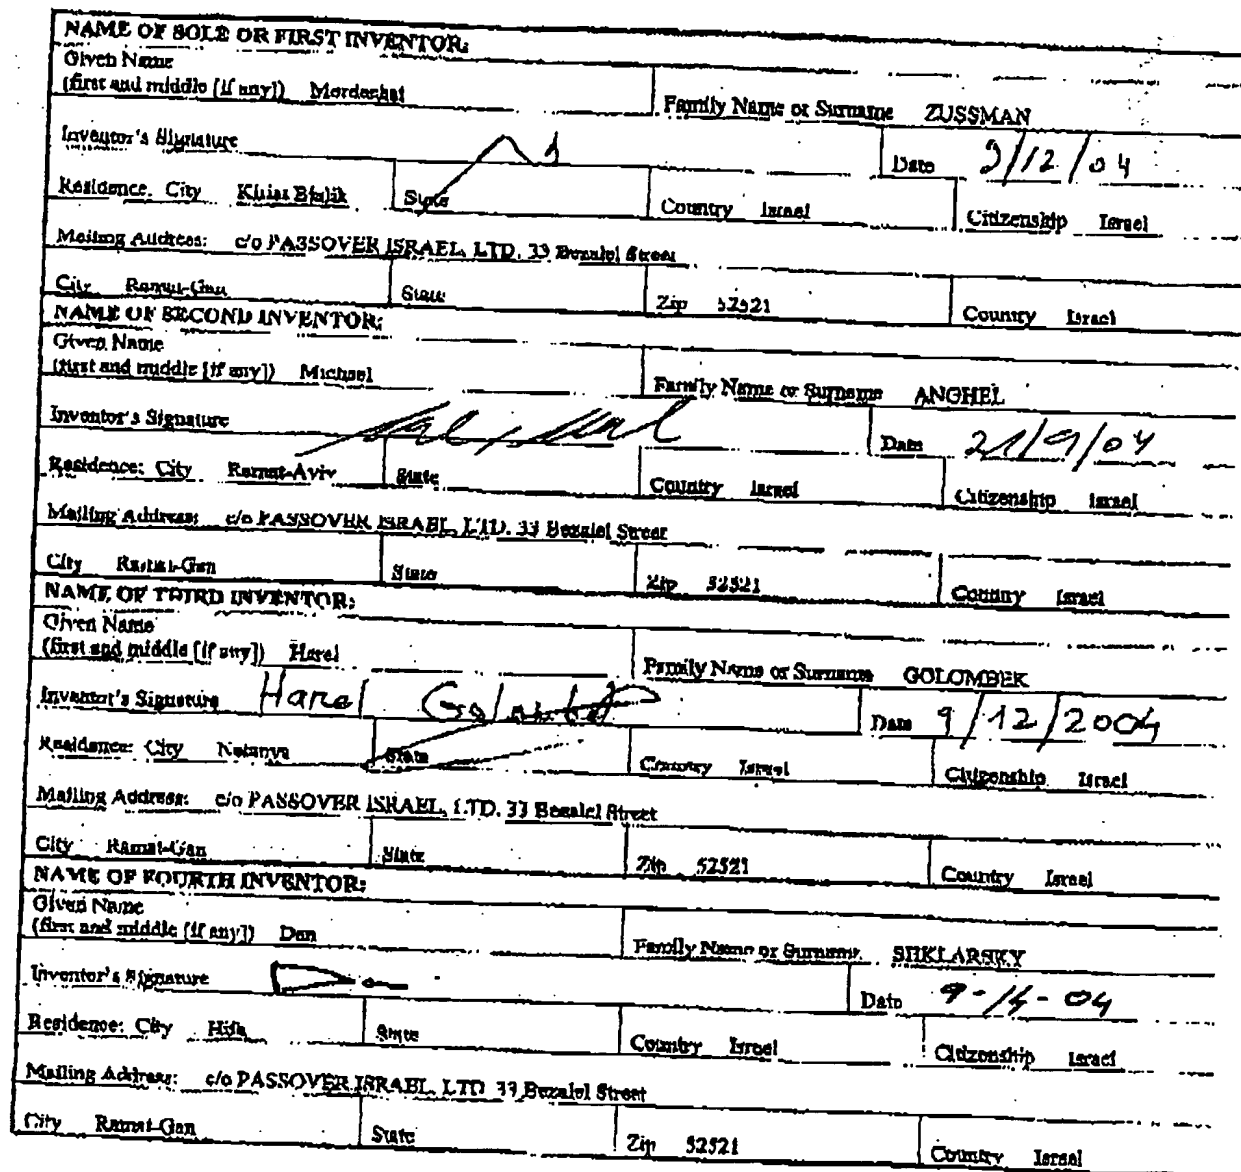 NAME OF SOLE OR FIRST INVENTOR:
Given Name
(first and middle [if any]) Mordechai Family Name or Surname ZUSSMAN
Inventor's Signature Date 9/12/04
Residence: City Kiriat Bialik State Country Israel Citizenship Israel
Mailing Address: c/o PASSOVER ISRAEL, LTD. 33 Bezalel Street
City Ramat-Gan State Zip 52521 Country Israel
NAME OF SECOND INVENTOR:
Given Name
(first and middle [if any]) Michael Family Name or Surname ANGHEL
Inventor's Signature Date 21/9/04
Residence: City Ramat-Aviv State Country Israel Citizenship Israel
Mailing Address: c/o PASSOVER ISRAEL, LTD. 33 Bezalel Street
City Ramat-Gan State Zip 52521 Country Israel
NAME OF THIRD INVENTOR:
Given Name
(first and middle [if any]) Harel Family Name or Surname GOLOMBEK
Inventor's Signature Harel Date 9/12/2004
Residence: City Netanya State Country Israel Citizenship Israel
Mailing Address: c/o PASSOVER ISRAEL, LTD. 33 Bezalel Street
City Ramat-Gan State Zip 52521 Country Israel
NAME OF FOURTH INVENTOR:
Given Name
(first and middle [if any]) Dan Family Name or Surname SHKLARSKY
Inventor's Signature Date
Residence: City Hifa State Country Israel Citizenship Israel
Mailing Address: c/o PASSOVER ISRAEL, LTD 33 Bezalel Street
City Ramat-Gan State Zip 52521 Country Israel